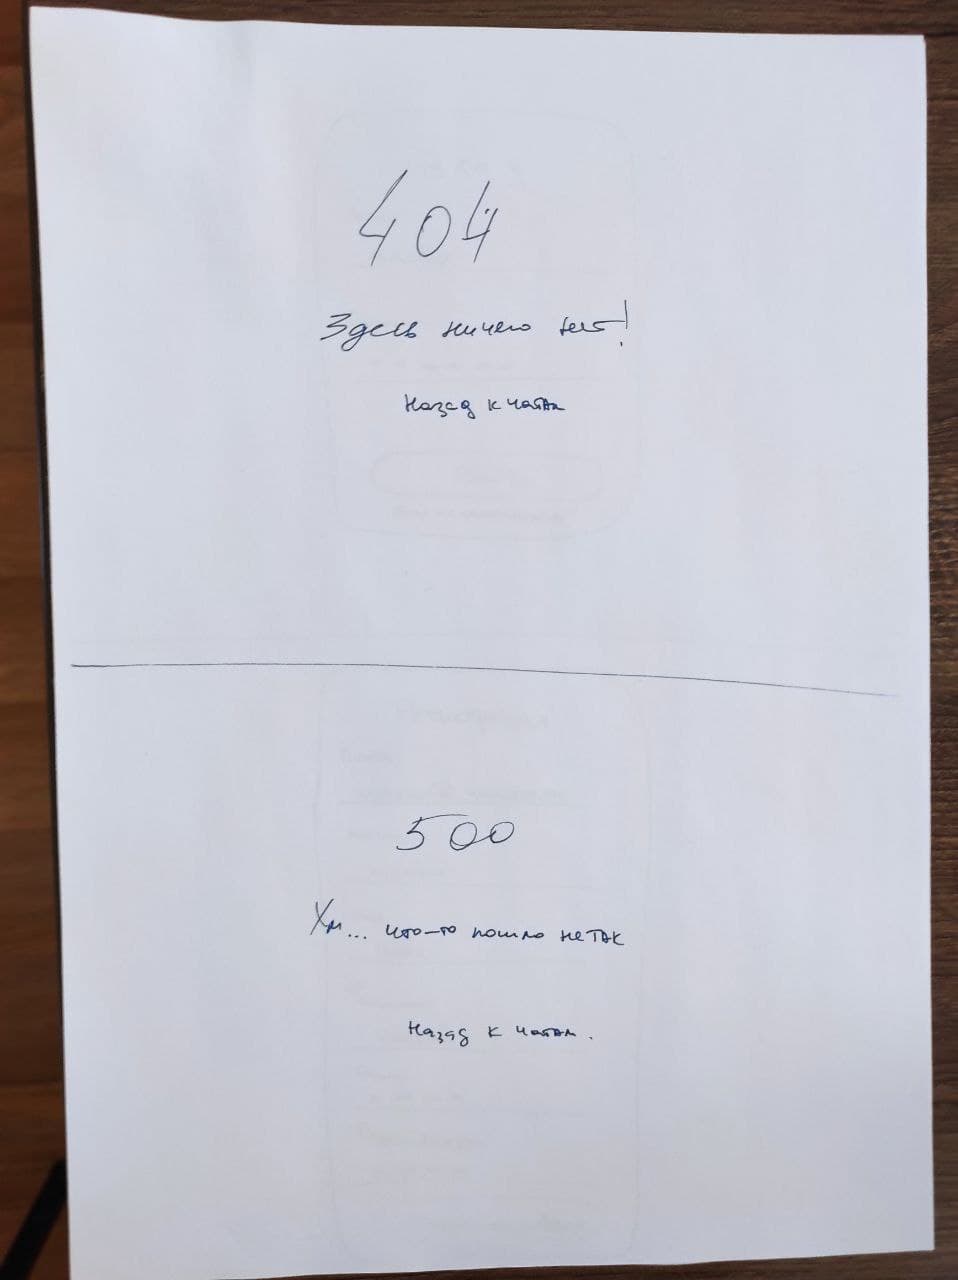 404
Здесь ничего нет!
Назад к чатам
500
Хм... что-то пошло не так
Назад к чатам.